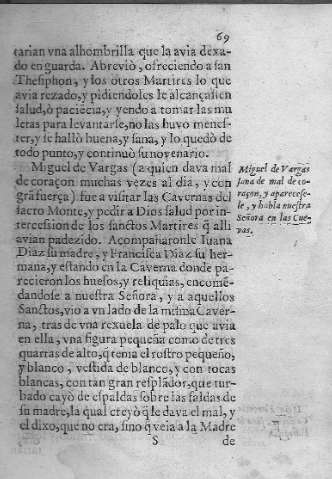 69
tarian vna alhombrilla que la avia dexa-
do en guarda. Abreviò, ofreciendo a san
Thesiphon, y los otros Martires lo que
avia rezado, y pidiendoles le alcançassen
salud, ò paciēcia, y yendo a tomar las mu
letas para levantarse, no las huvo menes-
ter, y se hallò buena, y sana, y lo quedò de
todo punto, y continuò su novenario.
Miguel de Vargas (a quien dava mal
de coraçon muchas vezes al dia, y con
grā fuerça) fue a visitar las Cavernas del
sacro Monte, y pedir a Dios salud por in-
tercession de los sanctos Martires q̄ alli
avian padezido. Acompañaronle Iuana
Diaz su madre, y Francisca Diaz su her-
mana, y estando en la Caverna donde pa-
recieron los huesos, y reliquias, encomē-
dandose a nuestra Señora, y a aquellos
Sanctos, vio a vn lado de la misma Caver-
na, tras de vna rexuela de palo que avia
en ella, vna figura pequeña como de tres
quartas de alto, q̄ tenia el rostro pequeño,
y blanco, vestida de blanco, y con tocas
blancas, con tan gran resplādor, que tur-
bado cayò de espaldas sobre las faldas de
su madre, la qual creyò q̄ le dava el mal, y
el dixo, que no era, sino q̄ veia a la Madre
S de
Miguel de Vargas
sana de mal de co-
raçon, y aparecese-
le, y habla nuestra
Señora en las Cue-
vas.